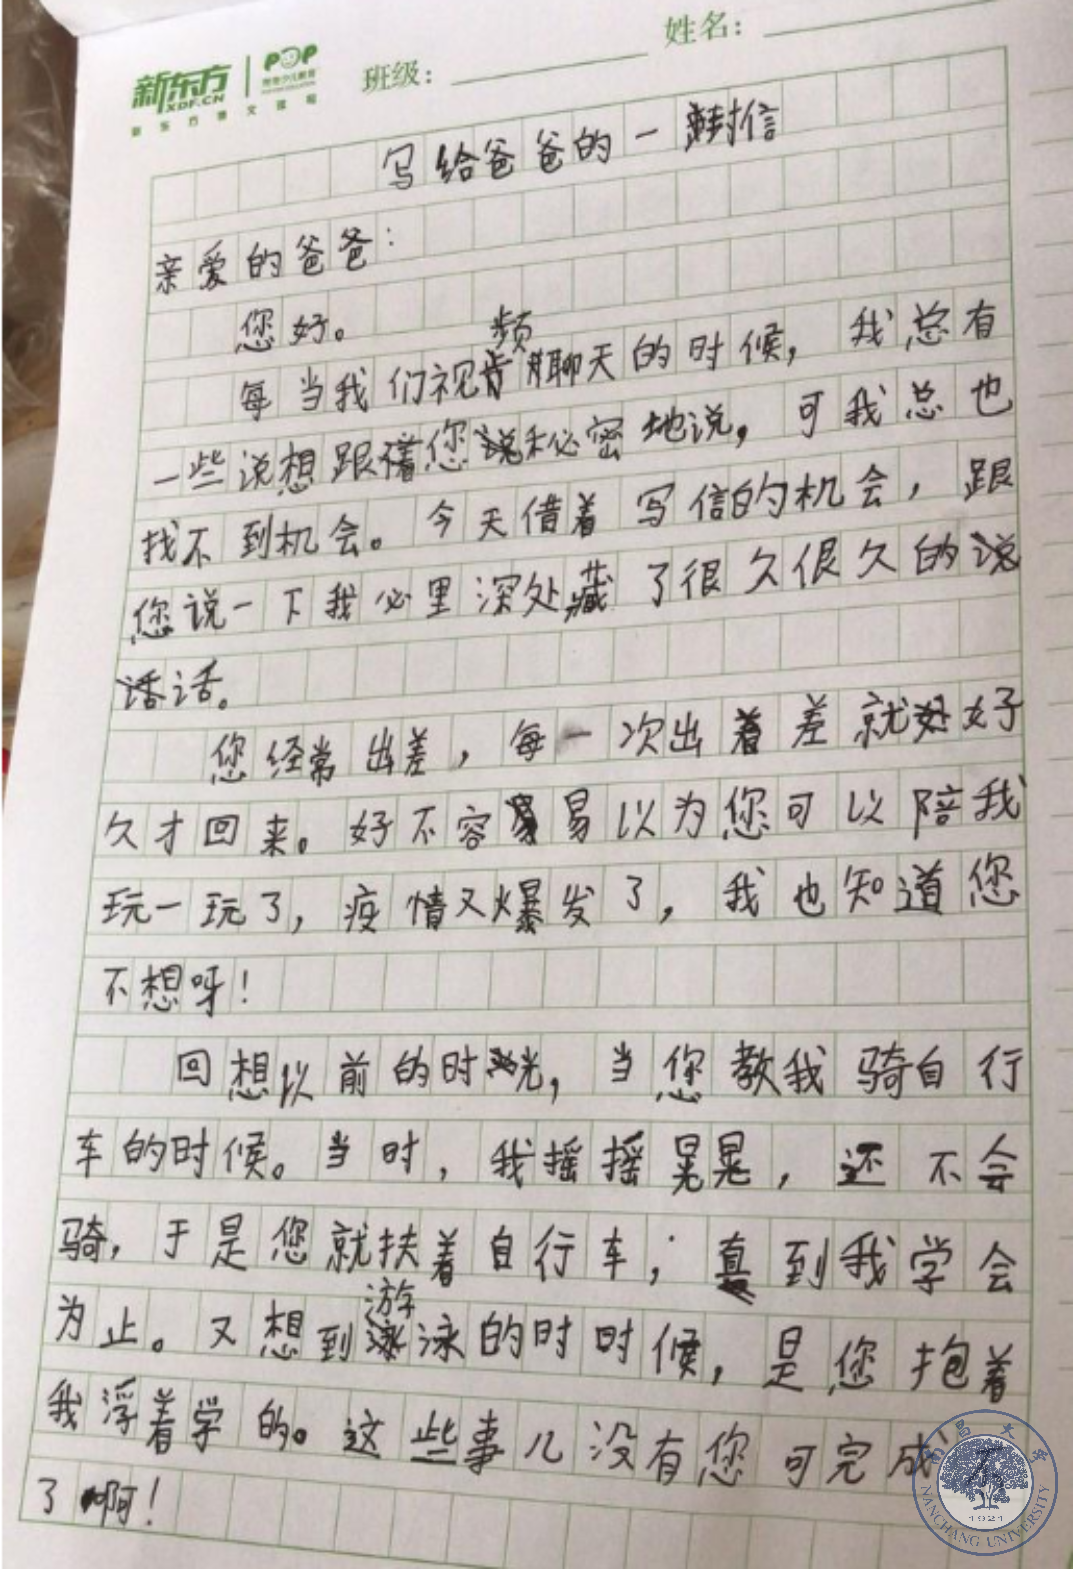 新东方 XDF.CN
POP
班级：
姓名：
写给爸爸的一封信
亲爱的爸爸：
您好。
每当我们视频聊天的时候，我总有
一些说想跟您说秘密地说，可我总也
找不到机会。今天借着写信的机会，跟
您说一下我必里深处藏了很久很久的
话。
您经常出差，每一次出差就好
久才回来。好不容易以为您可以陪我
玩一玩了，疫情又爆发了，我也知道您
不想呀！
回想以前的时光，当您教我骑自行
车的时候。当时，我摇摇晃晃，还不会
骑，于是您就扶着自行车；直到我学会
为止。又想到游泳的时时候，是您抱着
我浮着学的。这些事儿没有您可完成
了啊！
南昌大学
NANCHANG UNIVERSITY
1921